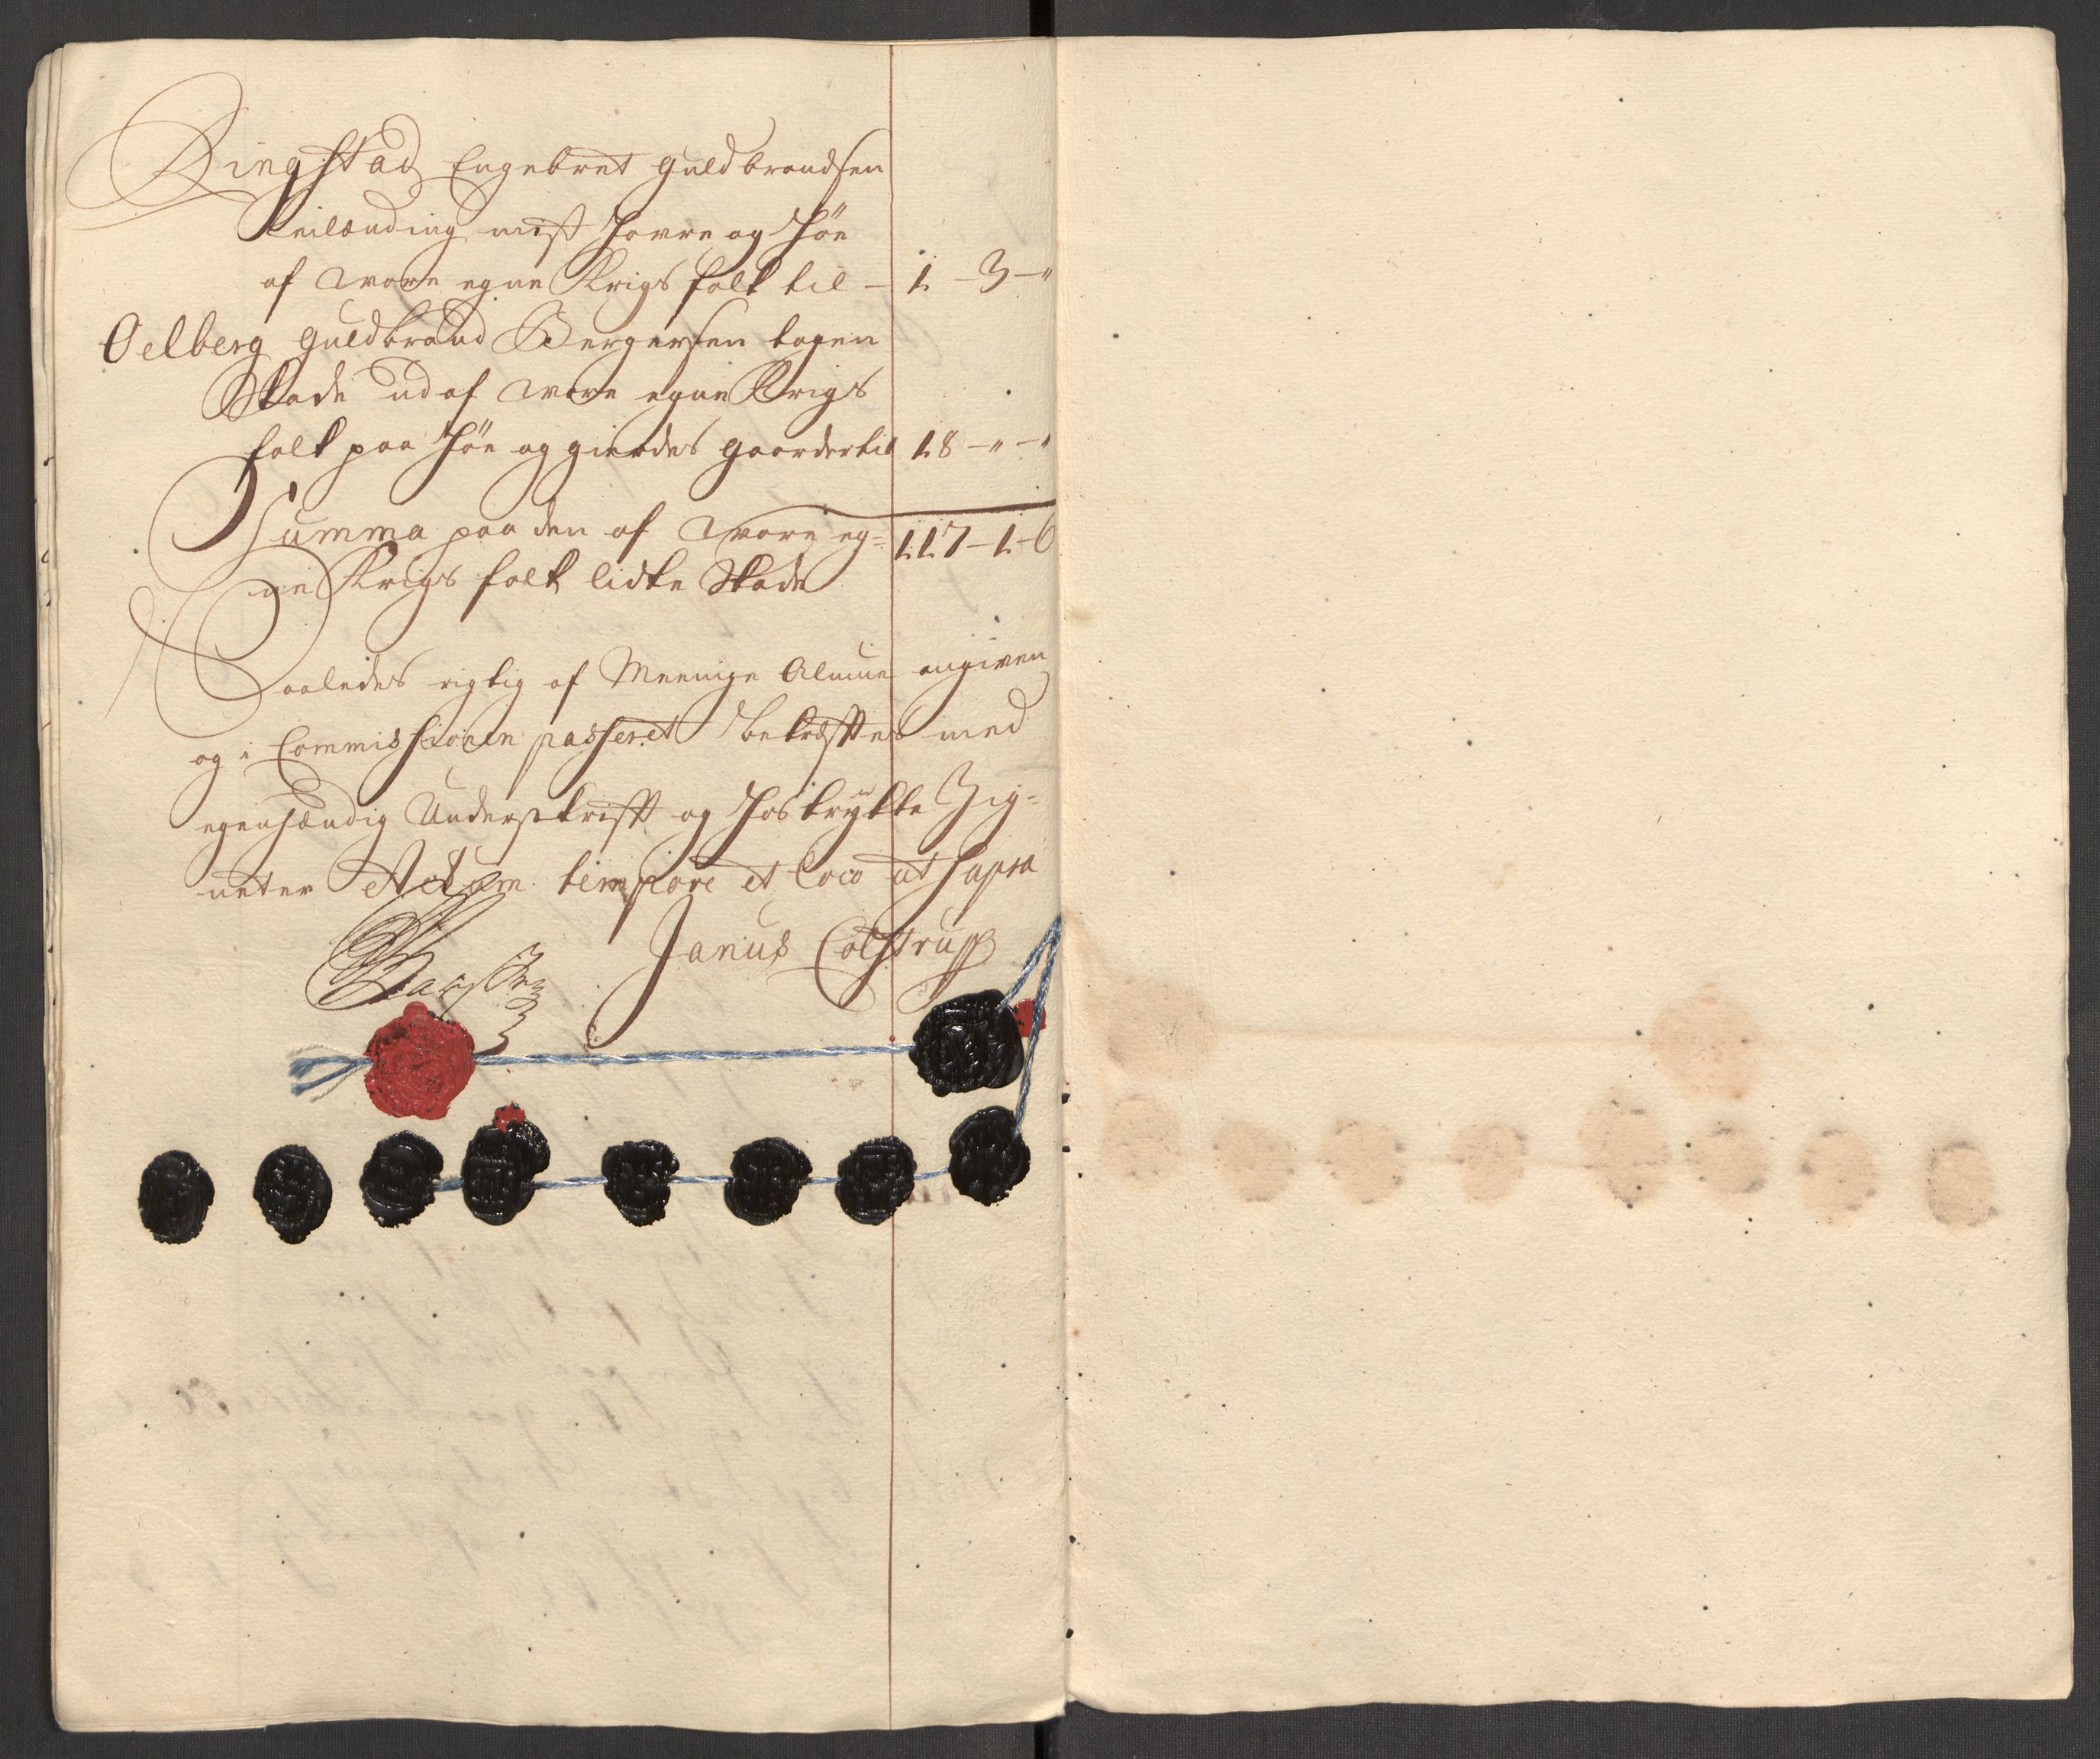 Ringstad Engebret Guldbrandsen
Leilænding mist Hafre og Höe
af vore egne Krigs folk til – 1 – 3 – "
Oelberg Guldbrand Bergersen tagen
Skade ud af vore egne Krigs
folk paa Höe og gierdes gaarder til 18 – " – "
Summa paa den af vore eg= 117 – 1 – 6
ne Krigs folk lidte Skade
Saaledes rigtig af Meenige Almue angiven
og i Commissionen passeret bekræfftes med
egenhændig Underskrifft og Hostrykte Zig=
neter Actum tempore et Loco ut supra
Janus Colstrup